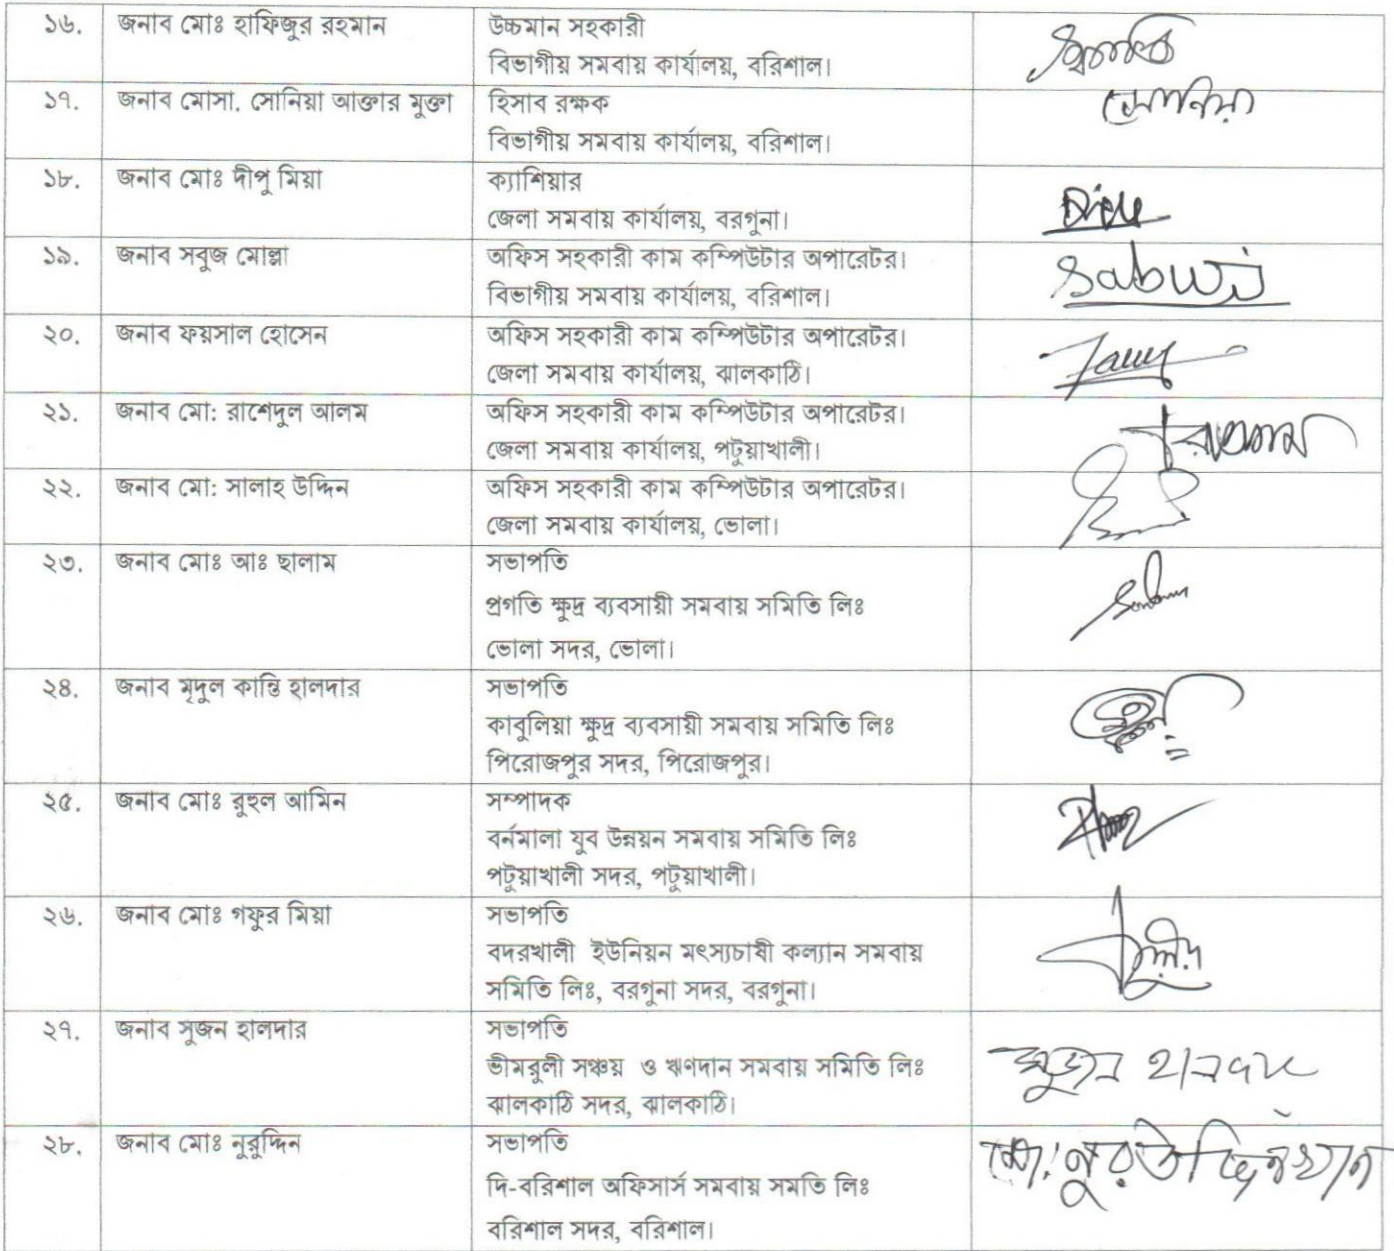 ১৬. জনাব মোঃ হাফিজুর রহমান উচ্চমান সহকারী
বিভাগীয় সমবায় কার্যালয়, বরিশাল।
১৭. জনাব মোসা. সোনিয়া আক্তার মুক্তা হিসাব রক্ষক সোনিয়া
বিভাগীয় সমবায় কার্যালয়, বরিশাল।
১৮. জনাব মোঃ দীপু মিয়া ক্যাশিয়ার
জেলা সমবায় কার্যালয়, বরগুনা। Dipu
১৯. জনাব সবুজ মোল্লা অফিস সহকারী কাম কম্পিউটার অপারেটর।
বিভাগীয় সমবায় কার্যালয়, বরিশাল। Sabuj
২০. জনাব ফয়সাল হোসেন অফিস সহকারী কাম কম্পিউটার অপারেটর।
জেলা সমবায় কার্যালয়, ঝালকাঠি।
২১. জনাব মো: রাশেদুল আলম অফিস সহকারী কাম কম্পিউটার অপারেটর।
জেলা সমবায় কার্যালয়, পটুয়াখালী।
২২. জনাব মো: সালাহ উদ্দিন অফিস সহকারী কাম কম্পিউটার অপারেটর।
জেলা সমবায় কার্যালয়, ভোলা।
২৩. জনাব মোঃ আঃ ছালাম সভাপতি
প্রগতি ক্ষুদ্র ব্যবসায়ী সমবায় সমিতি লিঃ
ভোলা সদর, ভোলা।
২৪. জনাব মৃদুল কান্তি হালদার সভাপতি
কাবুলিয়া ক্ষুদ্র ব্যবসায়ী সমবায় সমিতি লিঃ
পিরোজপুর সদর, পিরোজপুর।
২৫. জনাব মোঃ রুহুল আমিন সম্পাদক
বর্নমালা যুব উন্নয়ন সমবায় সমিতি লিঃ
পটুয়াখালী সদর, পটুয়াখালী।
২৬. জনাব মোঃ গফুর মিয়া সভাপতি
বদরখালী ইউনিয়ন মৎস্যচাষী কল্যান সমবায়
সমিতি লিঃ, বরগুনা সদর, বরগুনা।
২৭. জনাব সুজন হালদার সভাপতি
ভীমরুলী সঞ্চয় ও ঋণদান সমবায় সমিতি লিঃ সুজন হালদার
ঝালকাঠি সদর, ঝালকাঠি।
২৮. জনাব মোঃ নুরুদ্দিন সভাপতি
দি-বরিশাল অফিসার্স সমবায় সমতি লিঃ
বরিশাল সদর, বরিশাল।